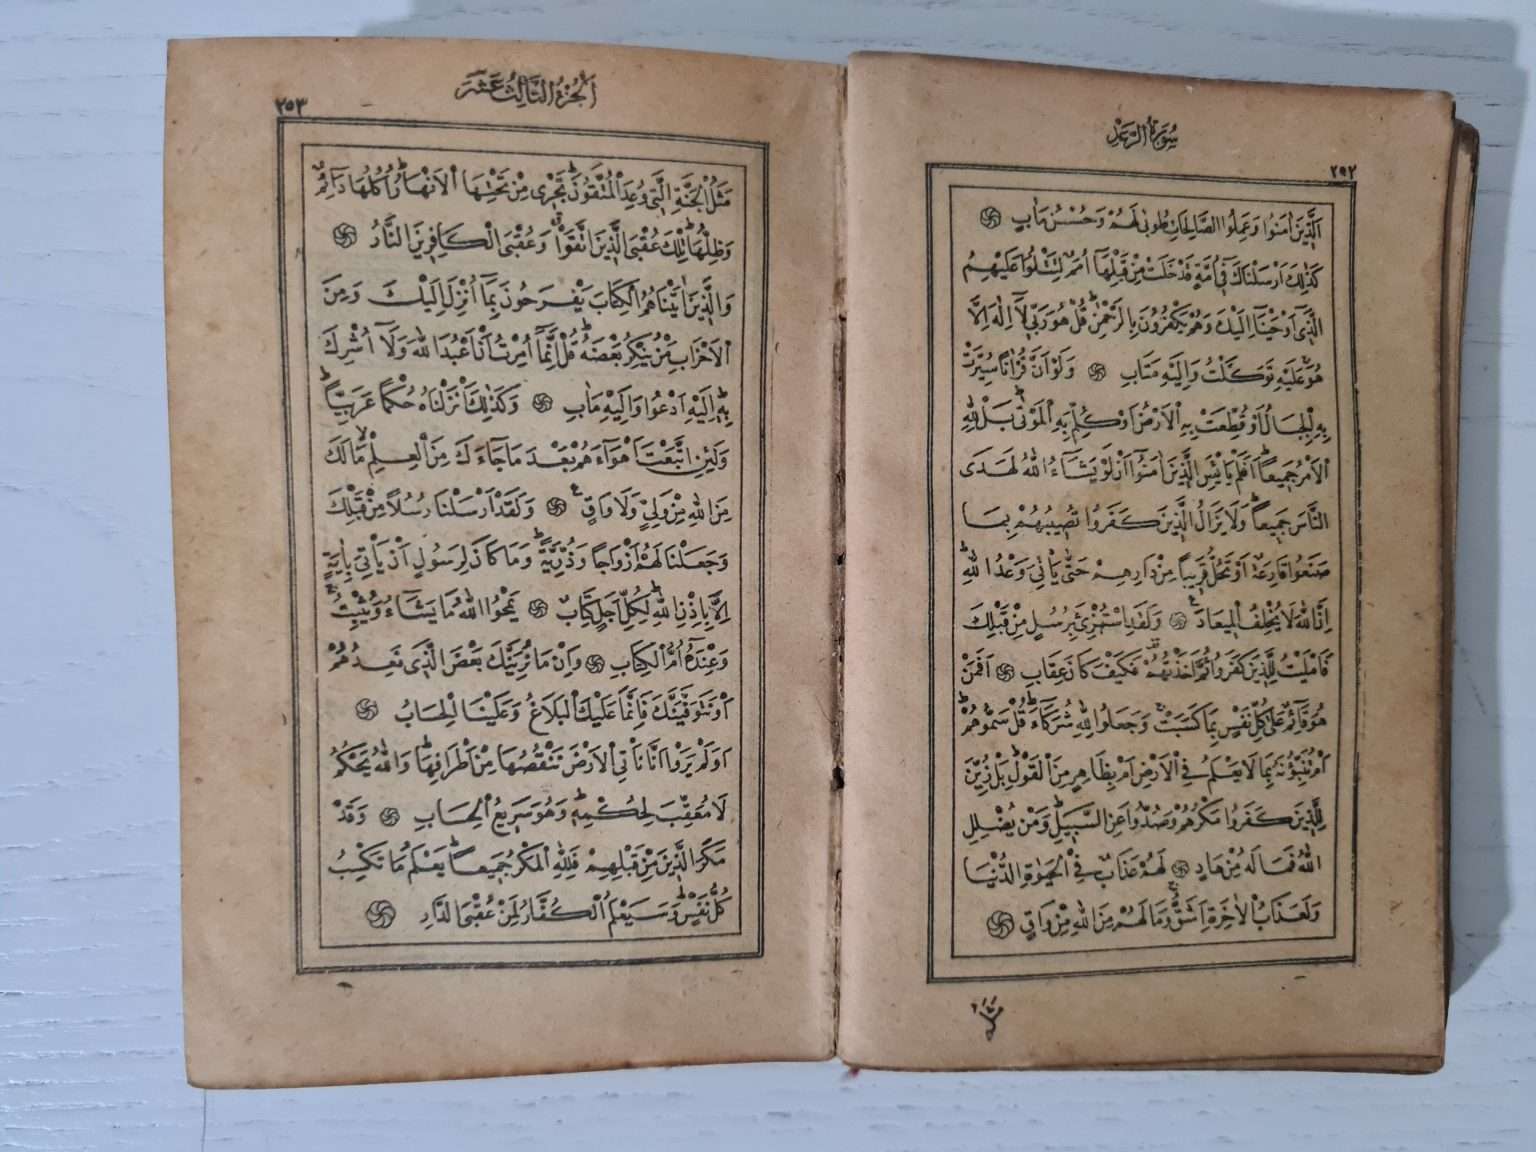 سُورَةُ الرَّعْدِ
٢٥٢
اَلَّذِينَ اٰمَنُوا وَعَمِلُوا الصَّالِحَاتِ طُوبٰى لَهُمْ وَحُسْنُ مَاٰبٍ
كَذٰلِكَ اَرْسَلْنَاكَ فِٓى اُمَّةٍ قَدْ خَلَتْ مِنْ قَبْلِهَٓا اُمَمٌ لِتَتْلُوَا عَلَيْهِمُ
الَّذِٓى اَوْحَيْنَٓا اِلَيْكَ وَهُمْ يَكْفُرُونَ بِالرَّحْمٰنِ قُلْ هُوَ رَبِّى لَٓا اِلٰهَ اِلَّا
هُوَ عَلَيْهِ تَوَكَّلْتُ وَاِلَيْهِ مَتَابِ وَلَوْ اَنَّ قُرْاٰنًا سُيِّرَتْ
بِهِ الْجِبَالُ اَوْ قُطِّعَتْ بِهِ الْاَرْضُ اَوْ كُلِّمَ بِهِ الْمَوْتٰى بَلْ لِلّٰهِ
الْاَمْرُ جَمِيعًا اَفَلَمْ يَايْـَٔسِ الَّذِينَ اٰمَنُٓوا اَنْ لَوْ يَشَٓاءُ اللّٰهُ لَهَدَى
النَّاسَ جَمِيعًا وَلَا يَزَالُ الَّذِينَ كَفَرُوا تُصِيبُهُمْ بِمَا
صَنَعُوا قَارِعَةٌ اَوْ تَحُلُّ قَرِيبًا مِنْ دَارِهِمْ حَتّٰى يَاْتِىَ وَعْدُ اللّٰهِ
اِنَّ اللّٰهَ لَا يُخْلِفُ الْمِيعَادَ وَلَقَدِ اسْتُهْزِئَ بِرُسُلٍ مِنْ قَبْلِكَ
فَاَمْلَيْتُ لِلَّذِينَ كَفَرُوا ثُمَّ اَخَذْتُهُمْ فَكَيْفَ كَانَ عِقَابِ اَفَمَنْ
هُوَ قَٓائِمٌ عَلٰى كُلِّ نَفْسٍ بِمَا كَسَبَتْ وَجَعَلُوا لِلّٰهِ شُرَكَٓاءَ قُلْ سَمُّوهُمْ
اَمْ تُنَبِّؤُنَهُ بِمَا لَا يَعْلَمُ فِى الْاَرْضِ اَمْ بِظَاهِرٍ مِنَ الْقَوْلِ بَلْ زُيِّنَ
لِلَّذِينَ كَفَرُوا مَكْرُهُمْ وَصُدُّوا عَنِ السَّبِيلِ وَمَنْ يُضْلِلِ
اللّٰهُ فَمَا لَهُ مِنْ هَادٍ لَهُمْ عَذَابٌ فِى الْحَيٰوةِ الدُّنْيَا
وَلَعَذَابُ الْاٰخِرَةِ اَشَقُّ وَمَا لَهُمْ مِنَ اللّٰهِ مِنْ وَاقٍ
اَلْجُزْءُ الثَّالِثُ عَشَرَ
٢٥٣
مَثَلُ الْجَنَّةِ الَّتِى وُعِدَ الْمُتَّقُونَ تَجْرِى مِنْ تَحْتِهَا الْاَنْهَارُ اُكُلُهَا دَٓائِمٌ
وَظِلُّهَا تِلْكَ عُقْبَى الَّذِينَ اتَّقَوْا وَعُقْبَى الْكَافِرِينَ النَّارُ
وَالَّذِينَ اٰتَيْنَاهُمُ الْكِتَابَ يَفْرَحُونَ بِمَٓا اُنْزِلَ اِلَيْكَ وَمِنَ
الْاَحْزَابِ مَنْ يُنْكِرُ بَعْضَهُ قُلْ اِنَّمَٓا اُمِرْتُ اَنْ اَعْبُدَ اللّٰهَ وَلَٓا اُشْرِكَ
بِهِ اِلَيْهِ اَدْعُوا وَاِلَيْهِ مَاٰبِ وَكَذٰلِكَ اَنْزَلْنَاهُ حُكْمًا عَرَبِيًّا
وَلَئِنِ اتَّبَعْتَ اَهْوَٓاءَهُمْ بَعْدَ مَا جَٓاءَكَ مِنَ الْعِلْمِ مَا لَكَ
مِنَ اللّٰهِ مِنْ وَلِىٍّ وَلَا وَاقٍ وَلَقَدْ اَرْسَلْنَا رُسُلًا مِنْ قَبْلِكَ
وَجَعَلْنَا لَهُمْ اَزْوَاجًا وَذُرِّيَّةً وَمَا كَانَ لِرَسُولٍ اَنْ يَاْتِىَ بِاٰيَةٍ
اِلَّا بِاِذْنِ اللّٰهِ لِكُلِّ اَجَلٍ كِتَابٌ يَمْحُوا اللّٰهُ مَا يَشَٓاءُ وَيُثْبِتُ
وَعِنْدَهُ اُمُّ الْكِتَابِ وَاِنْ مَا نُرِيَنَّكَ بَعْضَ الَّذِى نَعِدُهُمْ
اَوْ نَتَوَفَّيَنَّكَ فَاِنَّمَا عَلَيْكَ الْبَلَاغُ وَعَلَيْنَا الْحِسَابُ
اَوَلَمْ يَرَوْا اَنَّا نَاْتِى الْاَرْضَ نَنْقُصُهَا مِنْ اَطْرَافِهَا وَاللّٰهُ يَحْكُمُ
لَا مُعَقِّبَ لِحُكْمِهِ وَهُوَ سَرِيعُ الْحِسَابِ وَقَدْ
مَكَرَ الَّذِينَ مِنْ قَبْلِهِمْ فَلِلّٰهِ الْمَكْرُ جَمِيعًا يَعْلَمُ مَا تَكْسِبُ
كُلُّ نَفْسٍ وَسَيَعْلَمُ الْكُفَّارُ لِمَنْ عُقْبَى الدَّارِ